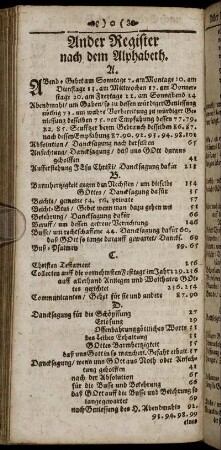 Ander Register
nach dem Alphabeth.
A.
Abend-Gebet am Sonntage 7. am Montage 10. am
Dienstage 13. am Mittwochen 17. am Donner-
stage 20. am Freytage 22. am Sonnabend 24
Abendmahl/ um Gaben/ so zu dessen würdiger Geniessung
nöthig 73. um wahre Vorbereitung zu würdiger Ge-
niessung desselben 75. vor Empfahung dessen 77. 79.
82. 85. Seuffzer beym Gebrauch desselben 86. 87.
nach dessen Empfahung 87. 90. 91. 93. 94. 98. 101
Absolution/ Dancksagung für dieselbe 65
Anfechtung/ Dancksagung/ daß uns GOtt daraus
geholffen 41
Aufferstehung JEsu Christi/ Dancksagung dafür
B.
Barmhertzigkeit gegen den Nechsten/ um dieselbe 154
GOttes/ Dancksagung dafür 51
Beichte/ gemeine 54. 56. private 57
Beicht-Stul/ Gebet wenn man dazu gehen will
Bekehrung/ Dancksagung dafür
Beruff/ um dessen getreue Verrichtung 146
Busse/ um rechtschaffene 44. Dancksagung dafür 60.
daß GOtt so lange darauff gewartet/ Dancks. 69
Buß-Psalmen
C.
Christen Testament 216
Collecten auff die vornehmsten Festtage im Jahr 219. 226
auff allerhand Anliegen und Wolthaten GOt-
tes gerichtet 236. 244
Communicanten/ Gebet für sie und andere 87. 90
D.
Dancksagung für die Schöpffung 27
Erlösung 29
Offenbahrung göttliches Worts 31
des lieben Erhaltung
GOttes Barmhertzigkeit 51
daß uns Gott in so mancher Gefahr erhalt 57
Dancksagung/ wenn uns GOtt aus Noth oder Anfech-
tung geholffen 41
nach der Absolution 65
für die Busse und Bekehrung 66
daß GOtt auff die Busse und Bekehrung so
lange gewartet 69
nach Geniessung des H. Abendmahls 91.
92. 94. 98. 99
eines